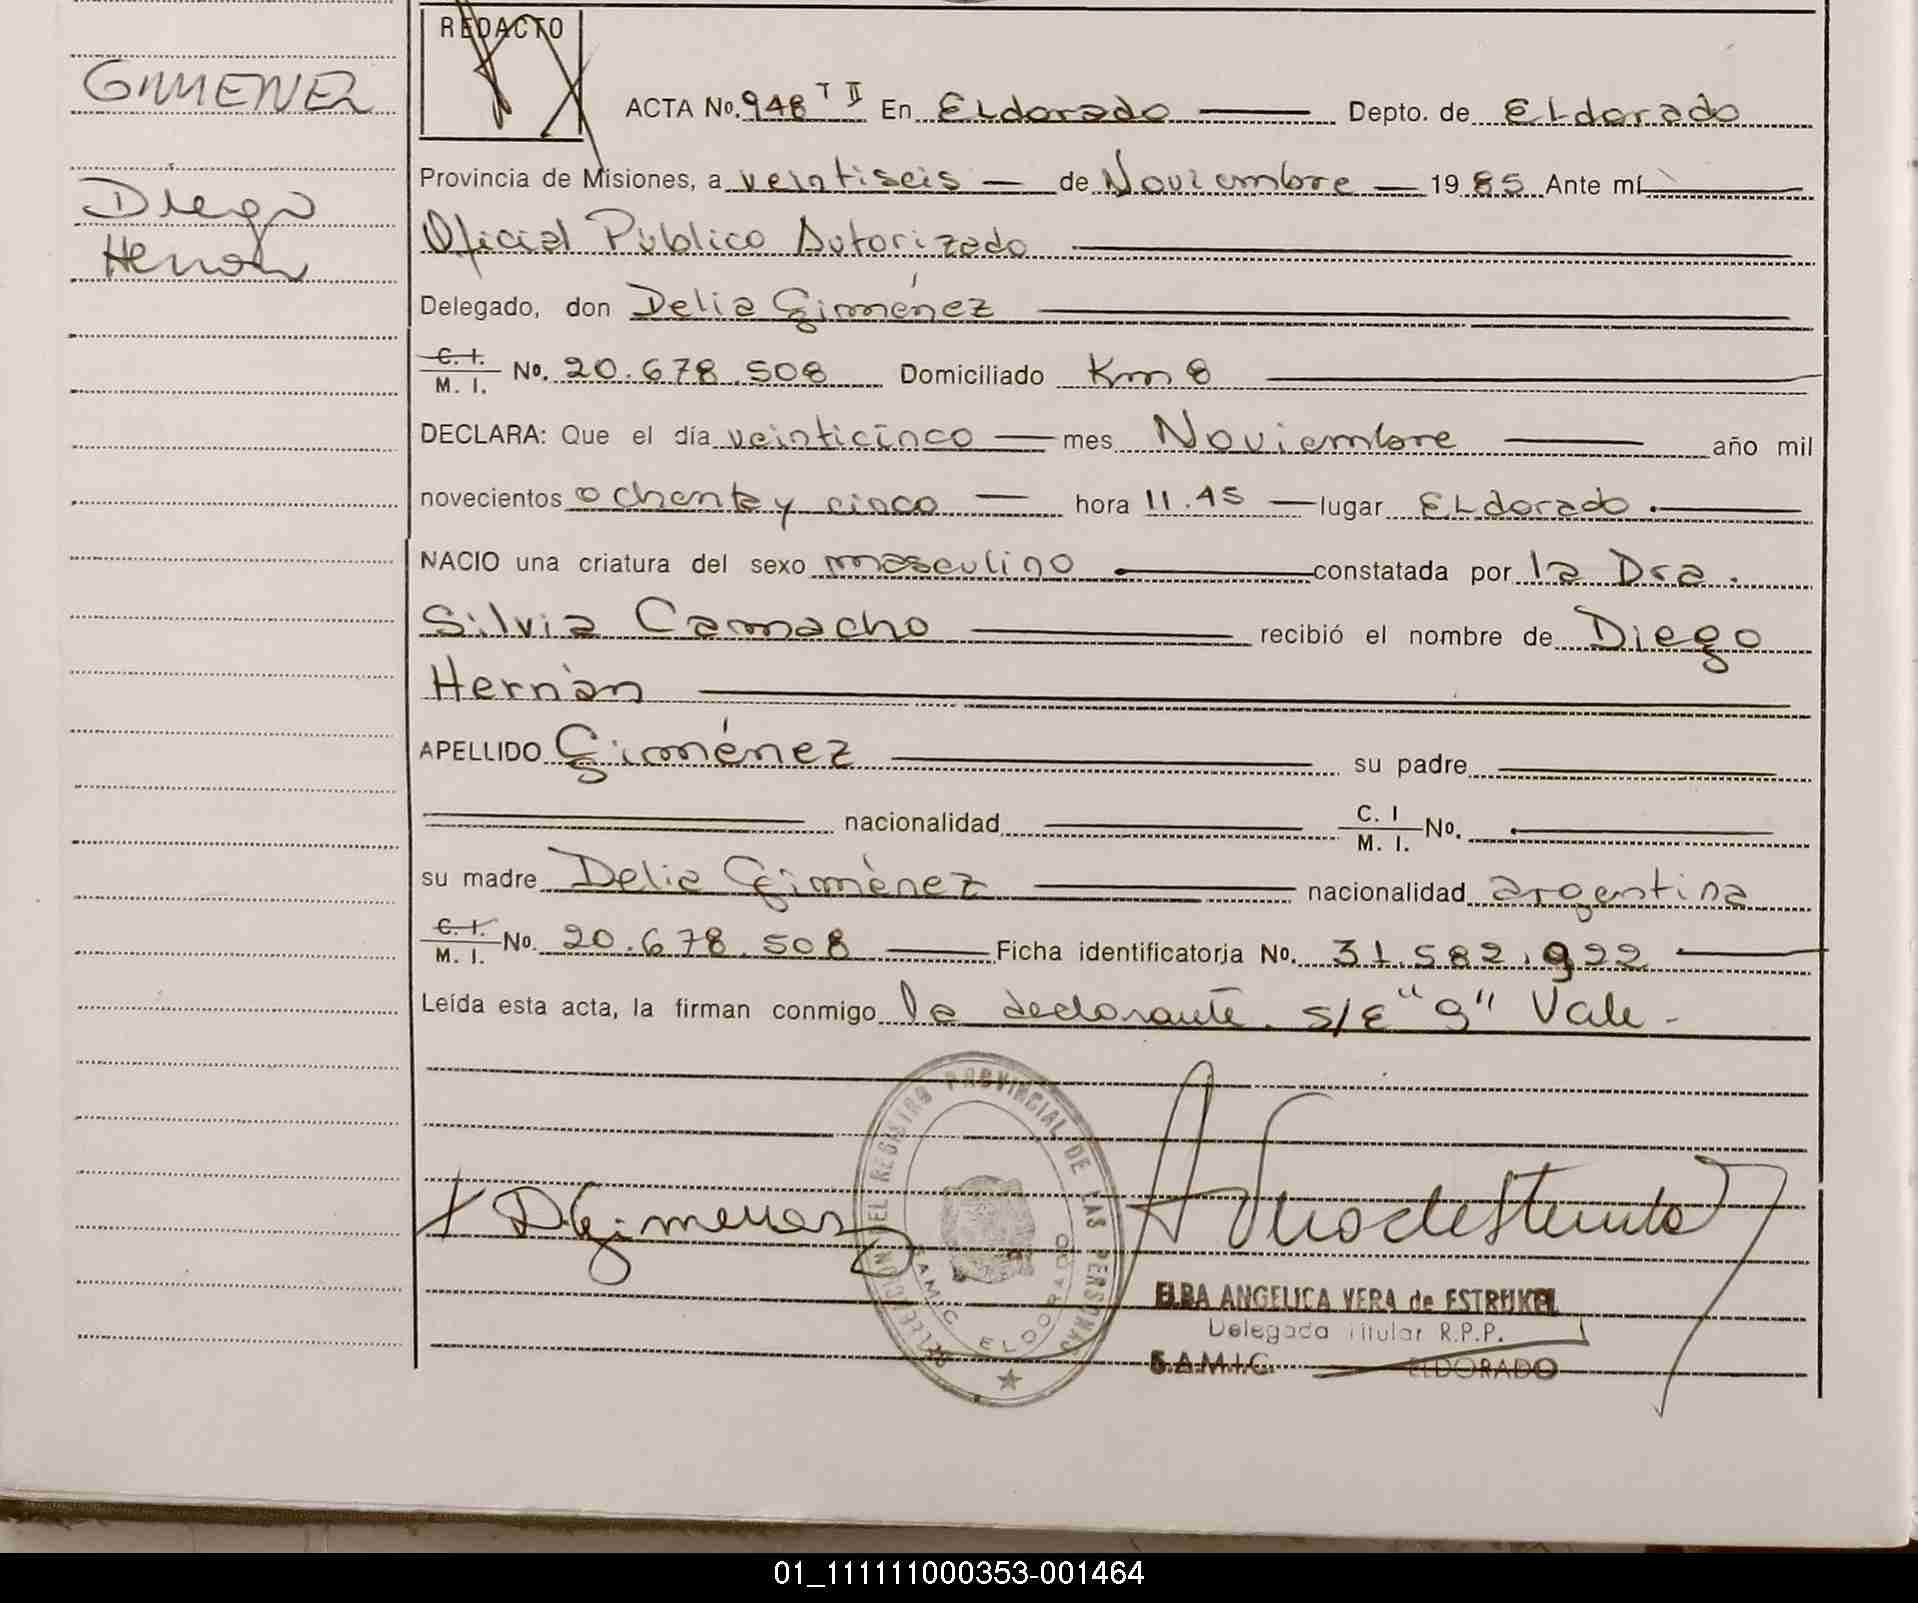 REDACTO
GIMENEZ
ACTA No. 948 T II En Eldorado Depto. de Eldorado
Provincia de Misiones, a veintiseis de Noviembre 1985 Ante mí
Diego
Hernan
Oficial Público Autorizado
Delegado, don Delia Giménez
C. I. M. I. No. 20.678.508 Domiciliado Km 8
DECLARA: Que el día veinticinco mes Noviembre año mil
novecientos ochenta y cinco hora 11.45 lugar Eldorado.
NACIO una criatura del sexo masculino constatada por la Dra.
Silvia Camacho recibió el nombre de Diego
Hernán
APELLIDO Giménez su padre
nacionalidad C. I M. I. No.
su madre Delia Giménez nacionalidad argentina
C. I. M. I. No. 20.678.508 Ficha identificatoria No. 31.582.922
Leída esta acta, la firman conmigo la declarante. s/E "9" Vale -
DELEGACION DEL REGISTRO PROVINCIAL DE LAS PERSONAS
SAMIC ELDORADO
DGimenez
ELBA ANGELICA VERA de ESTRUKEL
Delegada Titular R.P.P.
S.A.M.I.C. ELDORADO
01_111111000353-001464